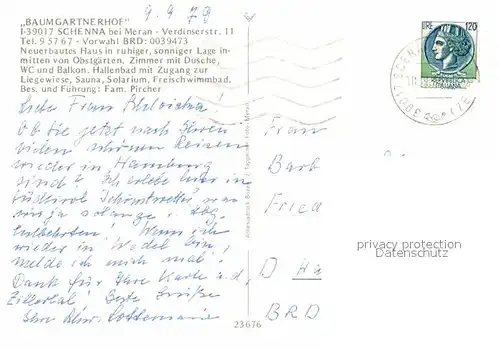 9.9.79
„BAUMGARTNERHOF"
I-39017 SCHENNA bei Meran - Verdinserstr. 11
Tel. 9 57 67 - Vorwahl BRD: 0039473
Neuerbautes Haus in ruhiger, sonniger Lage in-
mitten von Obstgärten. Zimmer mit Dusche,
WC und Balkon. Hallenbad mit Zugang zur
Liegewiese, Sauna, Solarium, Freischwimmbad.
Bes. und Führung: Fam. Pircher
LIRE 120
ITALIANA
39017 SCHENNA
Liebe Frau
Ob Sie jetzt nach Ihren
vielen schönen Reisen
wieder in Hamburg
sind? Ich erlebe hier in
Südtirol
was man
ja solange
Entbehrten! Wenn ich
wieder in Wedel bin,
melde ich mich mal!
Dank für Ihre Karte a.d.
Zillertal! Beste Grüße
Ihre Lottemarie
Frau
Barb
Fried
privacy protection
Datenschutz
D
BRD
23676